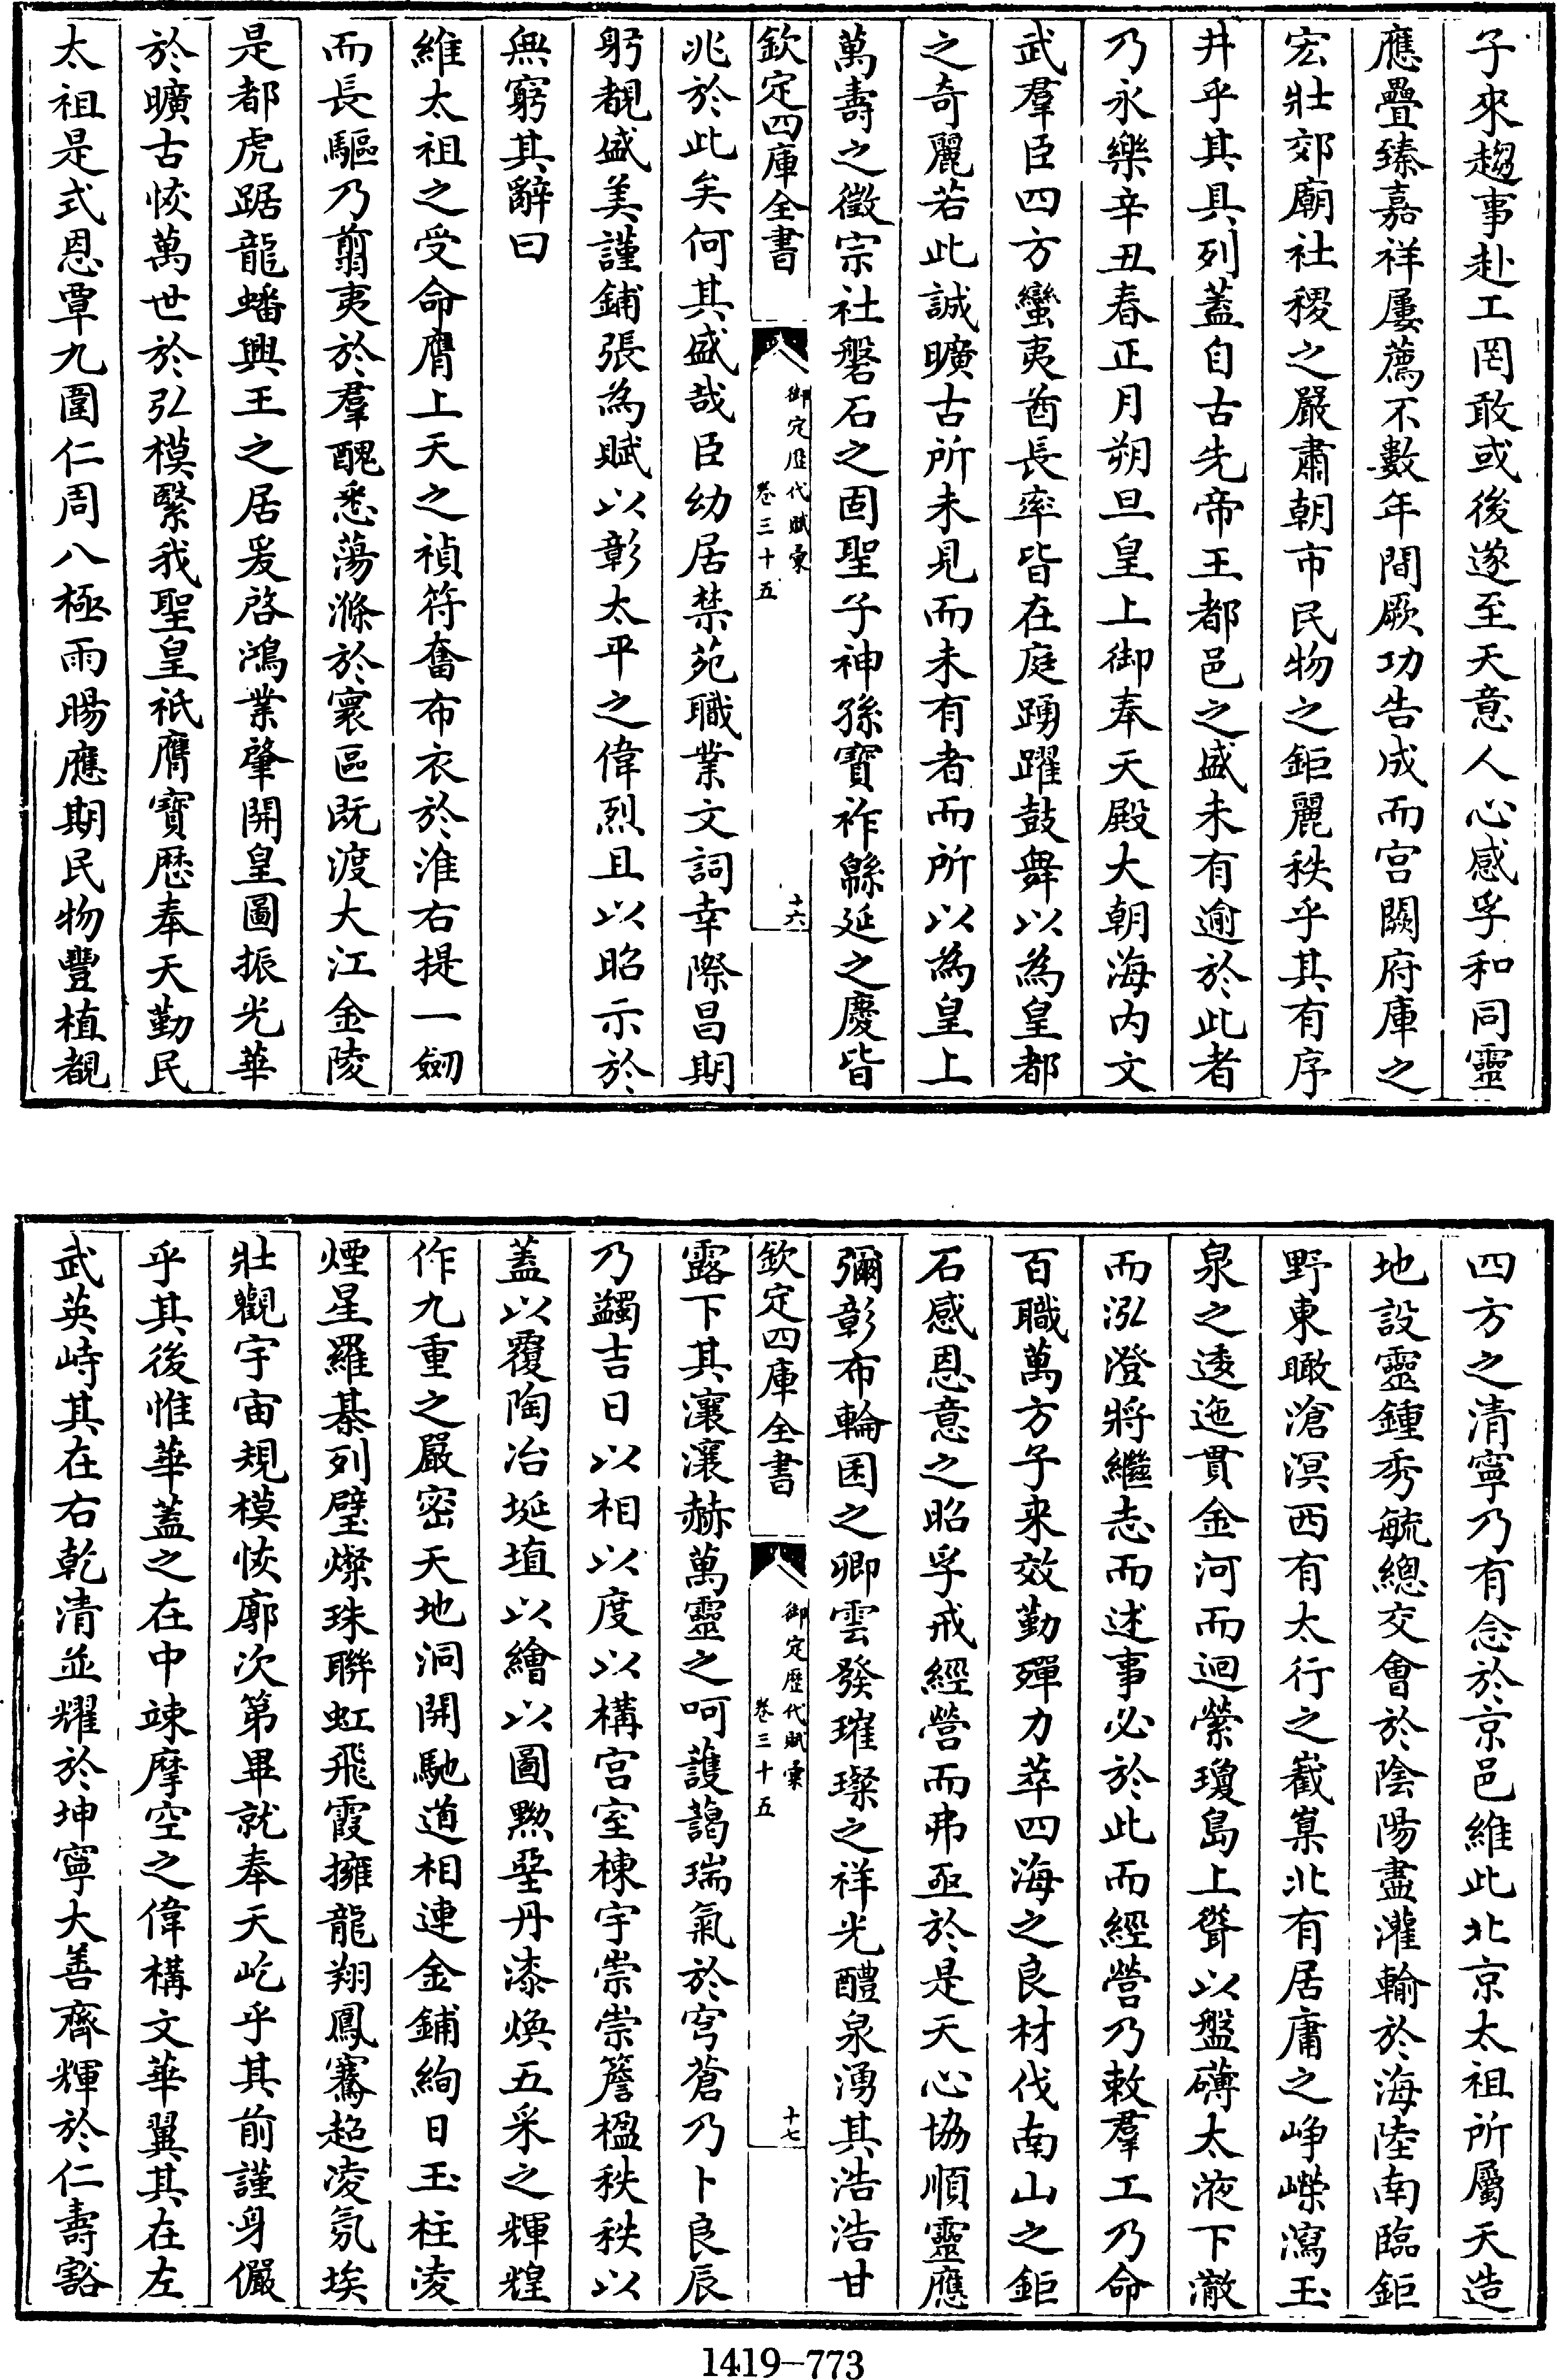 子來趨事赴工罔敢或後遂至天意人心感孚和同靈
應疊臻嘉祥屢薦不數年間厥功告成而宫闕府庫之
宏壯郊廟社稷之嚴肅朝市民物之鉅麗秩乎其有序
井乎其具列蓋自古先帝王都邑之盛未有逾於此者
乃永樂辛丑春正月朔旦皇上御奉天殿大朝海内文
武羣臣四方蠻夷酋長率皆在庭踴躍鼓舞以為皇都
之奇麗若此誠曠古所未見而未有者而所以為皇上
萬壽之徵宗社磐石之固聖子神孫寶祚緜延之慶皆
欽定四庫全書
御定歴代賦彙
卷三十五
十六
兆於此矣何其盛哉臣幼居禁苑職業文詞幸際昌期
躬覩盛美謹鋪張為賦以彰太平之偉烈且以昭示於
無窮其辭曰
維太祖之受命膺上天之禎符奮布衣於淮右提一劒
而長驅乃翦夷於羣醜悉蕩滌於寰區既渡大江金陵
是都虎踞龍蟠興王之居爰啓鴻業肇開皇圖振光華
於曠古恢萬世於弘模繄我聖皇祇膺寶歴奉天勤民
太祖是式恩覃九圍仁周八極雨暘應期民物豐植覩
四方之清寧乃有念於京邑維此北京太祖所屬天造
地設靈鍾秀毓總交會於陰陽盡灌輸於海陸南臨鉅
野東瞰滄溟西有太行之嶻嵲北有居庸之崢嶸瀉玉
泉之逶迤貫金河而迴縈瓊島上聳以盤礴太液下澈
而泓澄將繼志而述事必於此而經營乃敕羣工乃命
百職萬方子来效勤殫力萃四海之良材伐南山之鉅
石感恩意之昭孚戒經營而弗亟於是天心協順靈應
彌彰布輪囷之卿雲發璀璨之祥光醴泉湧其浩浩甘
欽定四庫全書
御定歴代賦彙
卷三十五
十七
露下其瀼瀼赫萬靈之呵䕶藹瑞氣於穹蒼乃卜良辰
乃蠲吉日以相以度以構宫室棟宇崇崇簷楹秩秩以
蓋以覆陶冶埏埴以繪以圖黝堊丹漆煥五采之輝煌
作九重之嚴密天地洞開馳道相連金鋪絢日玉柱凌
煙星羅棊列璧燦珠聯虹飛霞擁龍翔鳳騫超凌氛埃
壯觀宇宙規模恢廓次第畢就奉天屹乎其前謹身儼
乎其後惟華蓋之在中竦摩空之偉構文華翼其在左
武英峙其在右乾清並耀於坤寧大善齊輝於仁壽豁
1419—773